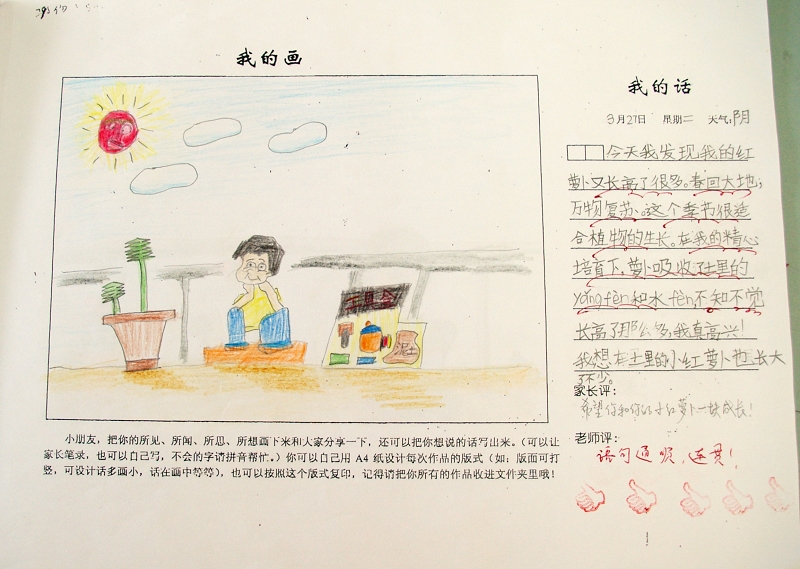 我的画
工具盒
小朋友，把你的所见、所闻、所思、所想画下来和大家分享一下，还可以把你想说的话写出来。（可以让
家长笔录，也可以自己写，不会的字请拼音帮忙。）你可以自己用 A4 纸设计每次作品的版式（如：版面可打
竖，可设计话多画小，话在画中等等），也可以按照这个版式复印，记得请把你所有的作品收进文件夹里哦！
我的话
3月27日 星期二 天气：阴
今天我发现我的红
萝卜又长高了很多。春回大地，
万物复苏。这个季节很适
合植物的生长。在我的精心
培育下，萝卜吸收了土里的
yǎng fèn 和水 fèn 不知不觉
长高了那么多，我真高兴！
我想在土里的小红萝卜也长大
了不少。
家长评：
希望你和你的小红萝卜一块成长！
老师评：
语句通顺，连贯！